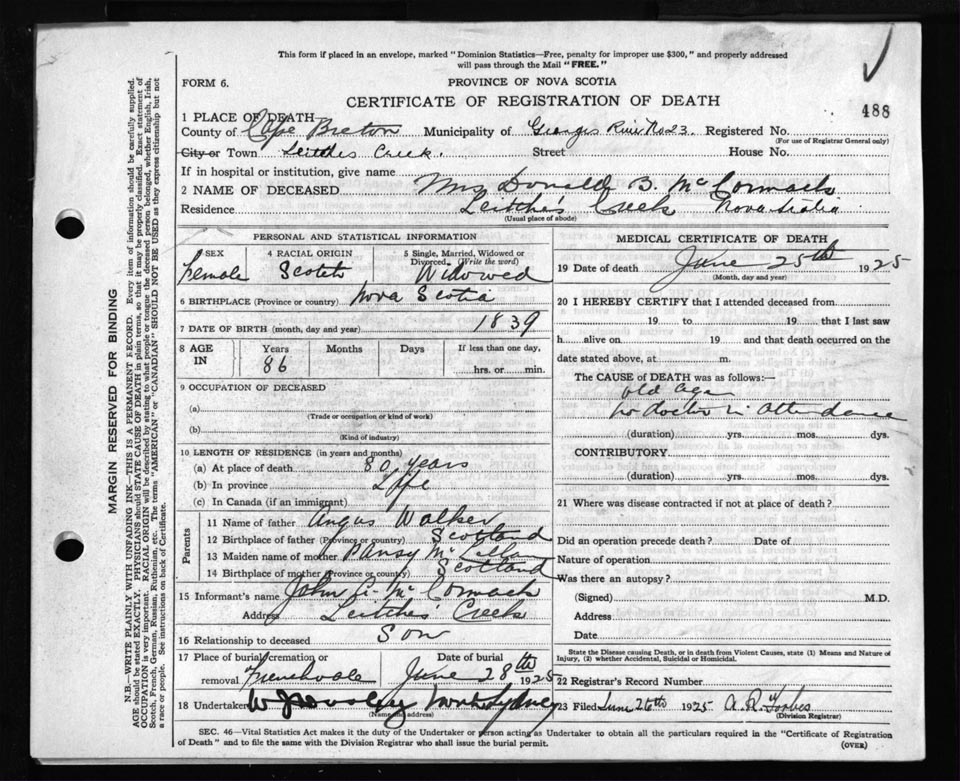 This form if placed in an envelope, marked "Dominion Statistics—Free, penalty for improper use $300," and properly addressed
will pass through the Mail "FREE."
FORM 6.
PROVINCE OF NOVA SCOTIA
CERTIFICATE OF REGISTRATION OF DEATH
488
1 PLACE OF DEATH—
County of Cape Breton Municipality of Georges River No 23. Registered No.
(For use of Registrar General only)
City or Town Leitches Creek. Street House No.
If in hospital or institution, give name
2 NAME OF DECEASED Mrs Donald B. McCormack
Residence Leitche's Creek Nova Scotia
(Usual place of abode)
PERSONAL AND STATISTICAL INFORMATION
SEX Female
4 RACIAL ORIGIN Scotch
5 Single, Married, Widowed or
Divorced. (Write the word)
Widowed
6 BIRTHPLACE (Province or country) Nova Scotia
7 DATE OF BIRTH (month, day and year) 1839
8 AGE IN Years 86 Months Days If less than one day, hrs. or min.
9 OCCUPATION OF DECEASED
(a)
(Trade or occupation or kind of work)
(b)
(Kind of industry)
10 LENGTH OF RESIDENCE (in years and months)
(a) At place of death 80 years
(b) In province Life
(c) In Canada (if an immigrant)
Parents
11 Name of father Angus Walker
12 Birthplace of father (Province or country) Scotland
13 Maiden name of mother McLellan
14 Birthplace of mother (Province or country) Scotland
15 Informant's name John A. McCormack
Address Leitches Creek
16 Relationship to deceased Son
17 Place of burial, cremation or
removal Frenchvale
Date of burial
June 28th 1925
18 Undertaker North Sydney
(Name and address)
MEDICAL CERTIFICATE OF DEATH
19 Date of death June 25th 1925
(Month, day and year)
20 I HEREBY CERTIFY that I attended deceased from
19 to 19 that I last saw
h alive on 19 and that death occurred on the
date stated above, at m.
The CAUSE of DEATH was as follows:—
old age
no doctor in attendance
(duration) yrs. mos. dys.
CONTRIBUTORY
(duration) yrs. mos. dys.
21 Where was disease contracted if not at place of death?
Did an operation precede death? Date of
Nature of operation
Was there an autopsy?
(Signed) M.D.
Address
Date
State the Disease causing Death, or in death from Violent Causes, state (1) Means and Nature of
Injury, (2) whether Accidental, Suicidal or Homicidal.
22 Registrar's Record Number
23 Filed June 26th 1925 A. R. Forbes
(Division Registrar)
SEC. 46—Vital Statistics Act makes it the duty of the Undertaker or person acting as Undertaker to obtain all the particulars required in the "Certificate of Registration
of Death" and to file the same with the Division Registrar who shall issue the burial permit.
(OVER)
MARGIN RESERVED FOR BINDING
N.B.—WRITE PLAINLY WITH UNFADING INK—THIS IS A PERMANENT RECORD. Every item of information should be carefully supplied.
AGE should be stated EXACTLY. PHYSICIANS should STATE CAUSE OF DEATH in plain terms, so that it may be properly classified. Exact statement of
OCCUPATION is very important. RACIAL ORIGIN will be described by stating to what people or tongue the deceased person belonged, whether English, Irish,
Scotch, French, German, Russian, Ruthenian, etc. The terms "AMERICAN" or "CANADIAN" SHOULD NOT BE USED as they express citizenship but not
a race or people. See instructions on back of Certificate.